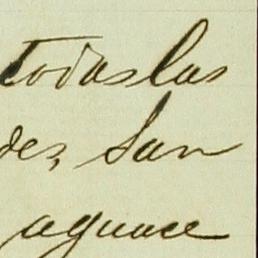 Todas las
des, San
aguace